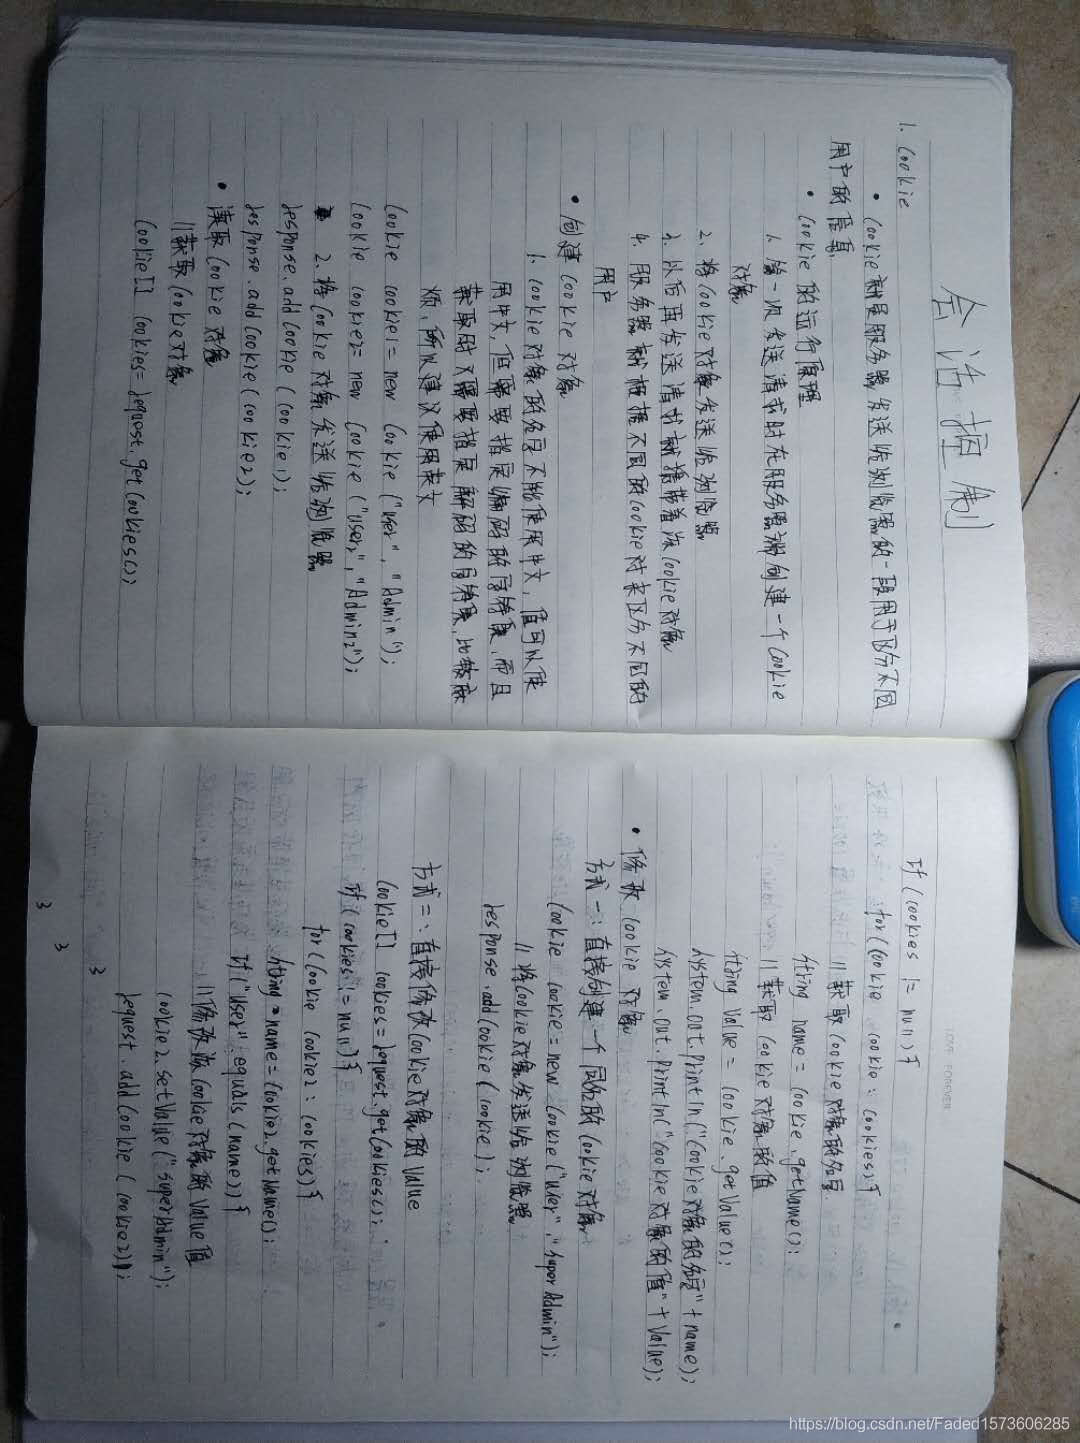 会话控制
1. Cookie
• Cookie就是服务器发送给浏览器的一段用于区分不同
用户的信息
• Cookie的运行原理
1. 第一次发送请求时在服务器端创建一个Cookie
对象
2. 将Cookie对象发送给浏览器
3. 以后再发送请求就携带着该Cookie对象
4. 服务器就根据不同的Cookie对来区分不同的
用户
• 创建Cookie对象
1. Cookie对象的名字不能使用中文，值可以使
用中文，但需要指定编码的字符集，而且
获取时又需要指定解码的字符集，比较麻
烦，所以建议使用英文
Cookie cookie1 = new Cookie ("user", "Admin");
Cookie cookie2 = new Cookie ("user2", "Admin2");
2. 将Cookie对象发送给浏览器
response.addCookie (cookie1);
response.addCookie (cookie2);
• 读取Cookie对象
//获取Cookie对象
Cookie[] cookies = request.getCookies();
if (cookies != null) {
for (Cookie cookie : cookies) {
//获取Cookie对象的名字
String name = cookie.getName();
//获取Cookie对象的值
String value = cookie.getValue();
System.out.println("Cookie对象的名字" + name);
System.out.println("Cookie对象的值" + value);
• 修改Cookie对象
方式一：直接创建一个同名的Cookie对象
Cookie cookie = new Cookie ("user", "superAdmin");
//将Cookie对象发送给浏览器
response.addCookie (cookie);
方式二：直接修改Cookie对象的value
Cookie[] cookies = request.getCookies();
if (cookies != null) {
for (Cookie cookie2 : cookies) {
String name = cookie2.getName();
if ("user".equals (name)) {
//修改该Cookie对象的value值
cookie2.setValue ("superAdmin");
request.addCookie (cookie2));
}
}
}
LOVE FOREVER
https://blog.csdn.net/Faded1573606285